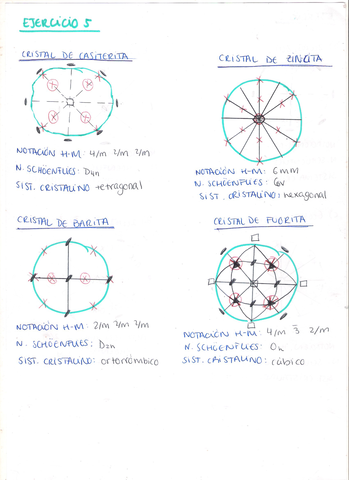 EJERCICIO 5
CRISTAL DE CASITERITA
NOTACIÓN H-M: 4/m 2/m 2/m
N. SCHÖENFLIES: D4h
SIST. CRISTALINO: tetragonal
CRISTAL DE ZINCITA
NOTACIÓN H-M: 6mm
N. SCHÖENFLIES: C6v
SIST. CRISTALINO: hexagonal
CRISTAL DE BARITA
NOTACIÓN H-M: 2/m 2/m 2/m
N. SCHÖENFLIES: D2h
SIST. CRISTALINO: ortorrómbico
CRISTAL DE FLUORITA
NOTACIÓN H-M: 4/m 3̅ 2/m
N. SCHÖENFLIES: Oh
SIST. CRISTALINO: cúbico